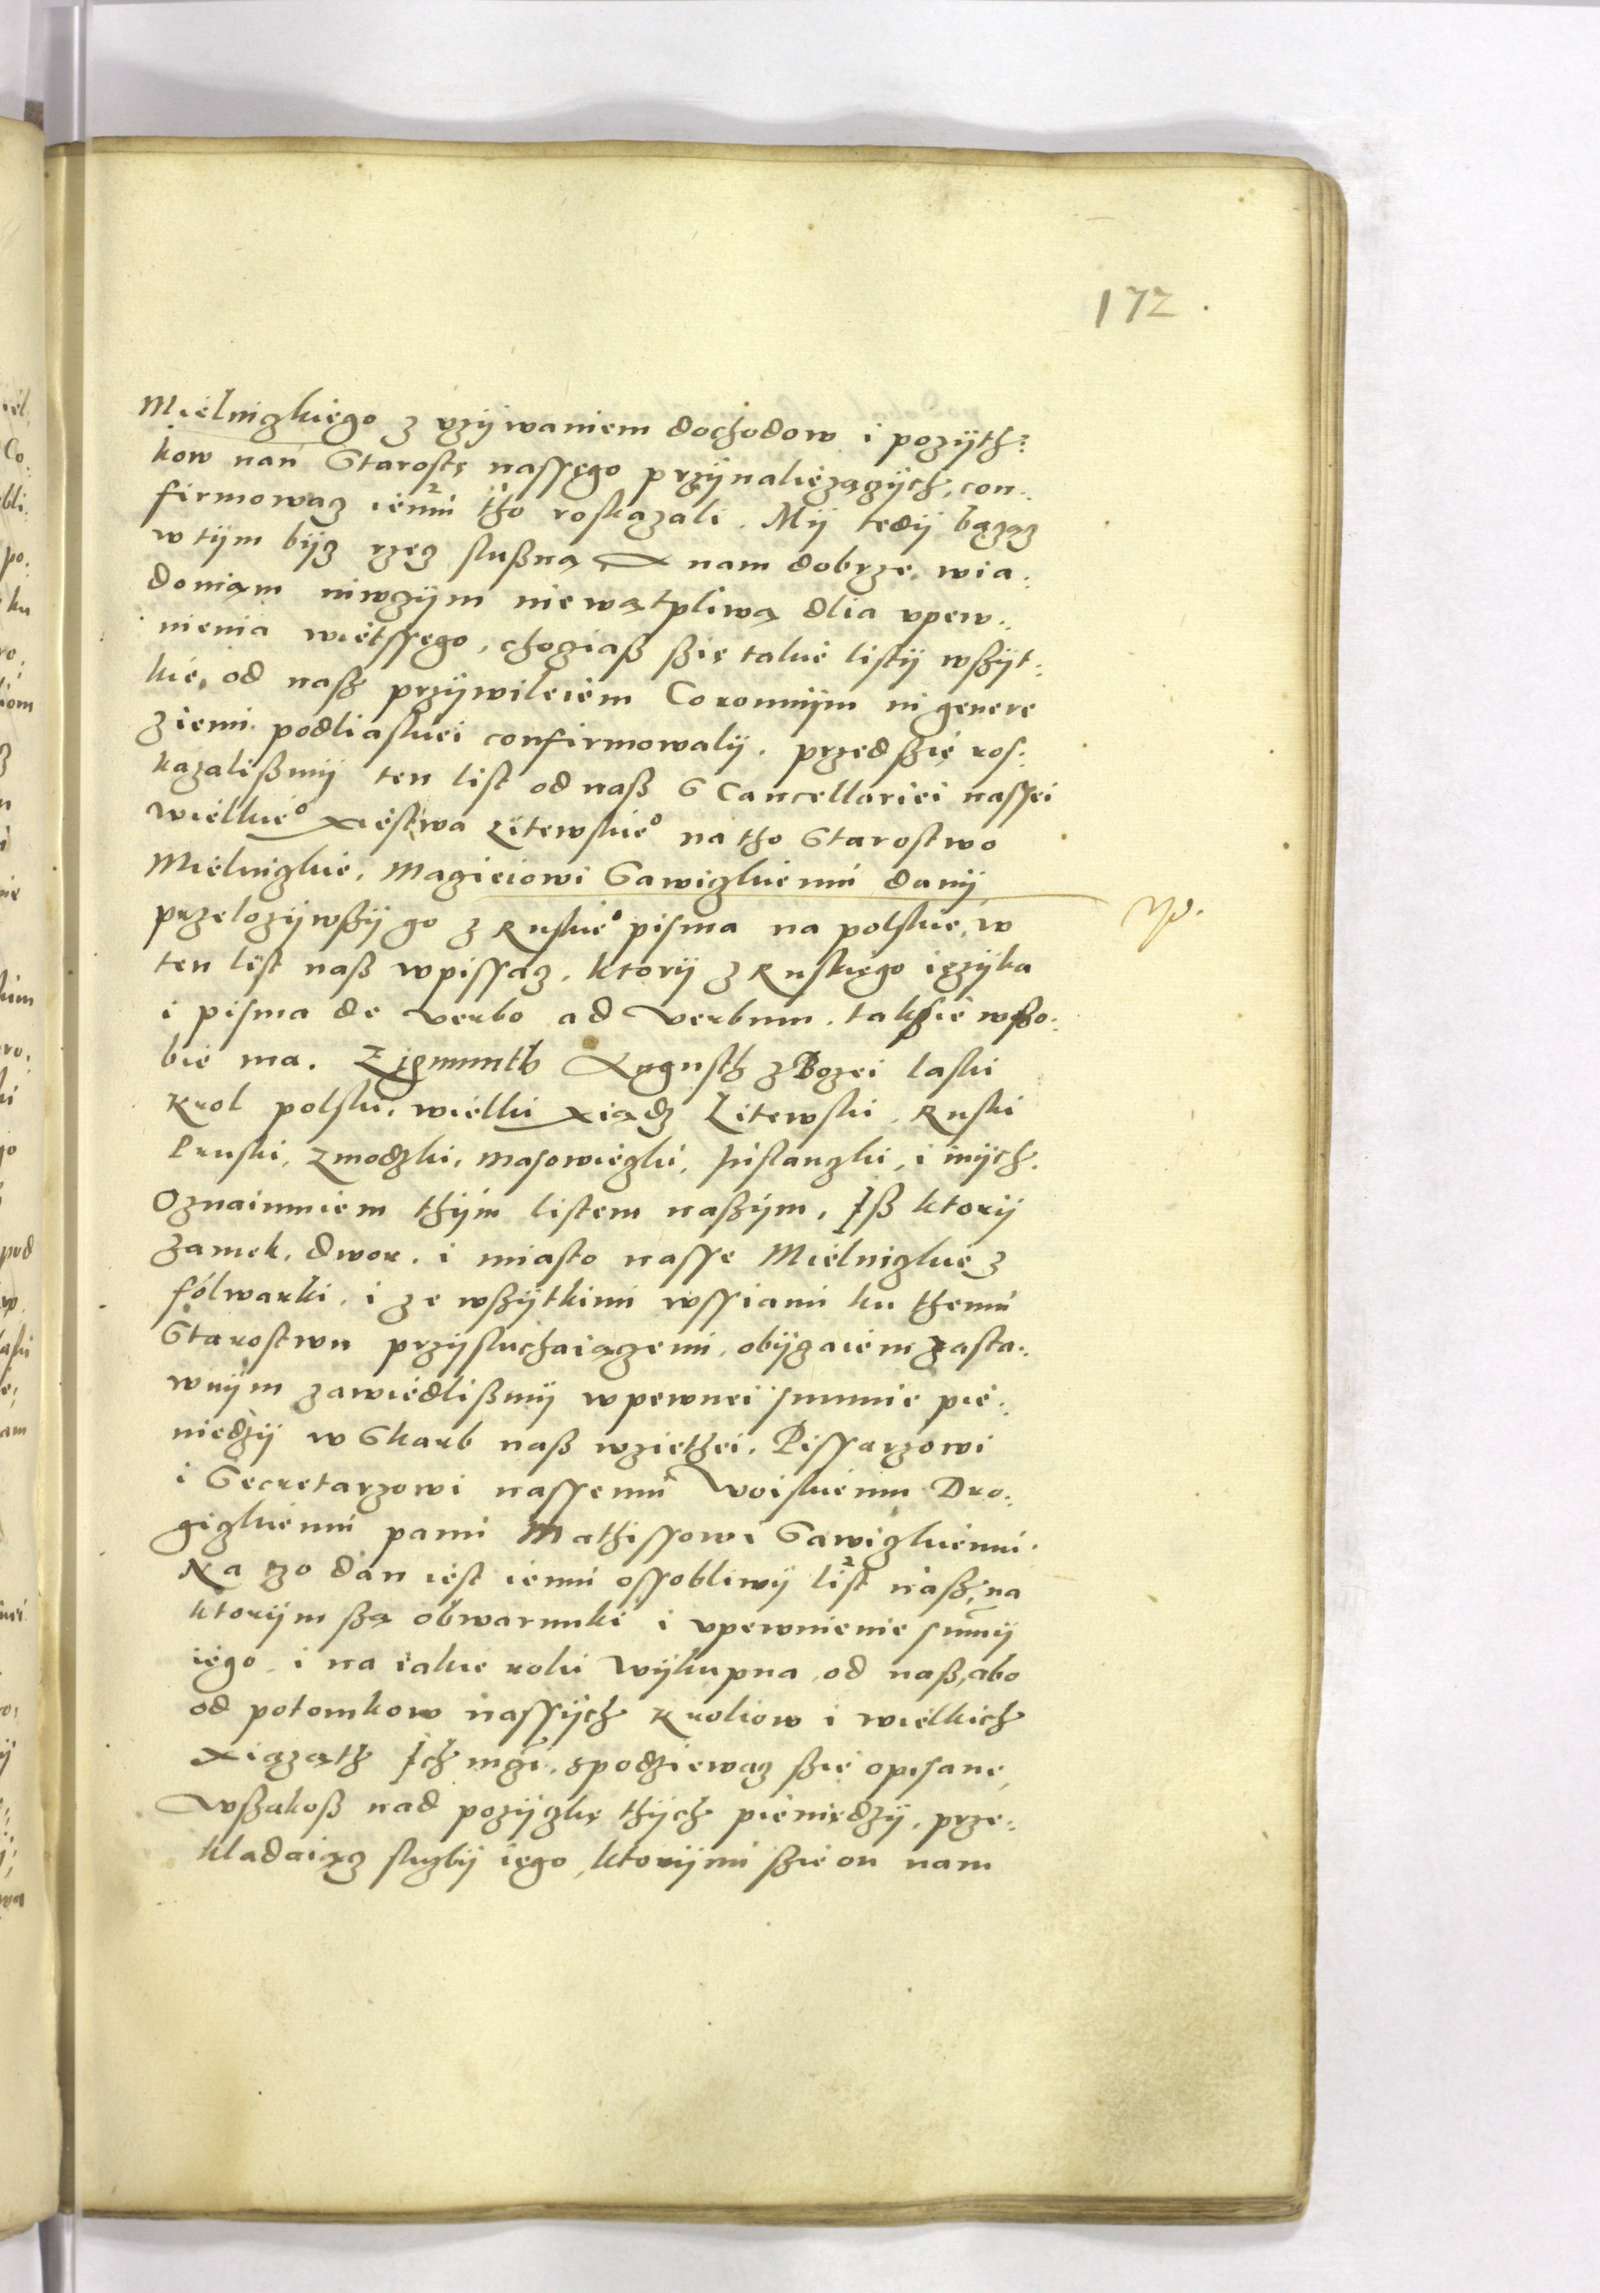 172.
Mielnigkiego z vzywaniem dochodow i pozyth:
kow nan Starostę nassego przynaliezągych, con:
firmowag iemu tho roskazali. My tedy bągąg
w tym byg rzeg slußną A nam dobrze, wia:
domąm niwgym niewątpliwą dlia vpew:
nienia wietssego, chogiaß ßię takie listy wßyt:
kie, od naß przywileiem Coronnym in genere
ziemi podliaskiei confirmowaly. przedßię ros:
kazalißmy ten list od naß S Cancellariei nassei
wielkieo Xiestwa Litewskieo na tho Starostwo
Mielnigkie, Magieiowi Sawigkiemu dany
przelozywßy go z Ruskieo pisma na polskie, w
ten list naß wpissag, ktory z Ruskiego ięzyka
i pisma de verbo ad verbum, tak ßie wßo:
bie ma. Zigmunth Augusth z Bozei laski
Krol polski, wielki Xiądz Litewski, Ruski
Pruski, Zmodzki, Masowiegki, Iislangki, i inych.
Oznaimuiem thym listem naßym, Iß ktory
Zamek, dwor, i miasto nasse Mielnigkie z
folwarki, i ze wßytkimi wssiami ku themu
Starostwu przysluchaiągemi, obygaiem zasta:
wnym zawiedlißmy w pewnei summie pie:
niedzy w Skarb naß wziethei, Pissarzowi
i Secretarzowi nassemu Woiskiemu Dro:
gigkiemu panu Mathissowi Sawigkiemu.
Na go dan iest iemu ossobliwy list naß, na
ktorym ßą obwarunki i vpewnienie summy
iego, i na iakie roki wykupna, od naß, abo
od potomkow nassych Kroliow i wielkich
Xiązath Ich mgi, spodziewag ßię opisane,
Wßakoß nad pozygkę thych pieniędzy, prze:
kladaiąg sluzby iego, ktorymi ßię on nam